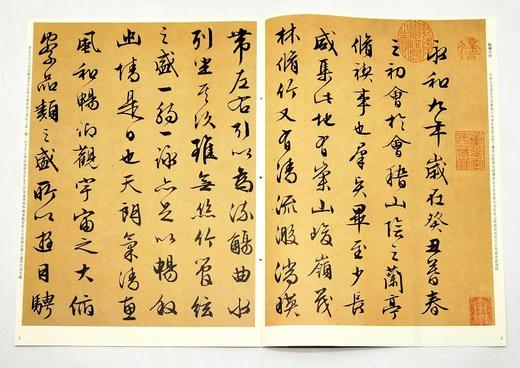 永和九年歲在癸丑暮春
之初會於會稽山陰之蘭亭
脩禊事也羣賢畢至少長
咸集此地有崇山峻嶺茂
林脩竹又有清流激湍映
帶左右引以為流觴曲水
列坐其次雖無絲竹管絃
之盛一觴一詠亦足以暢敘
幽情是日也天朗氣清惠
風和暢仰觀宇宙之大俯
察品類之盛所以遊目騁